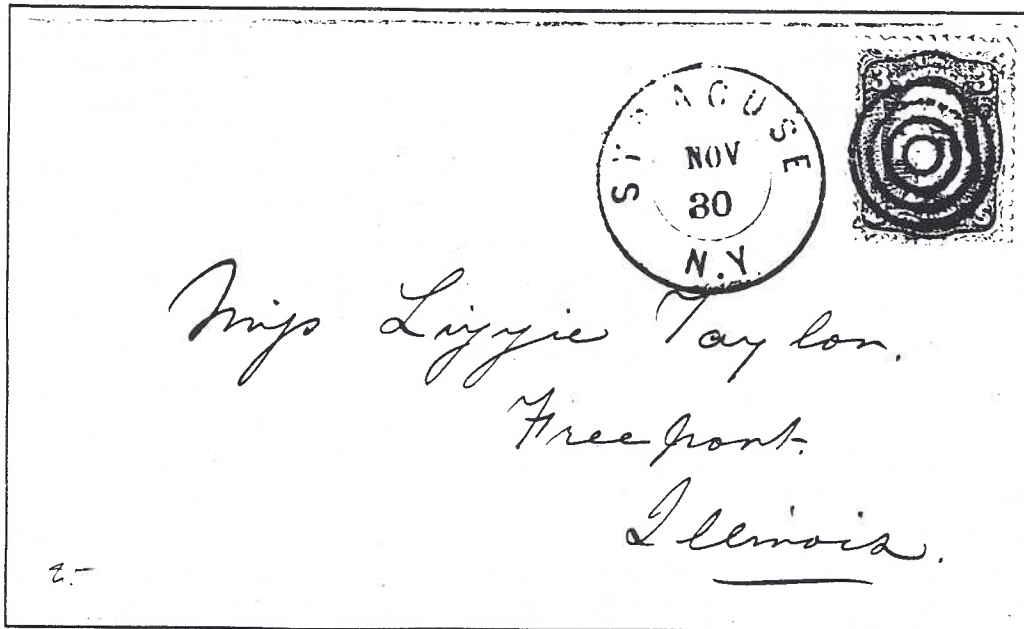 SYRACUSE
NOV
30
N.Y.
3 3
Miss Lizzie Taylor.
Freeport.
Illinois.
2.-